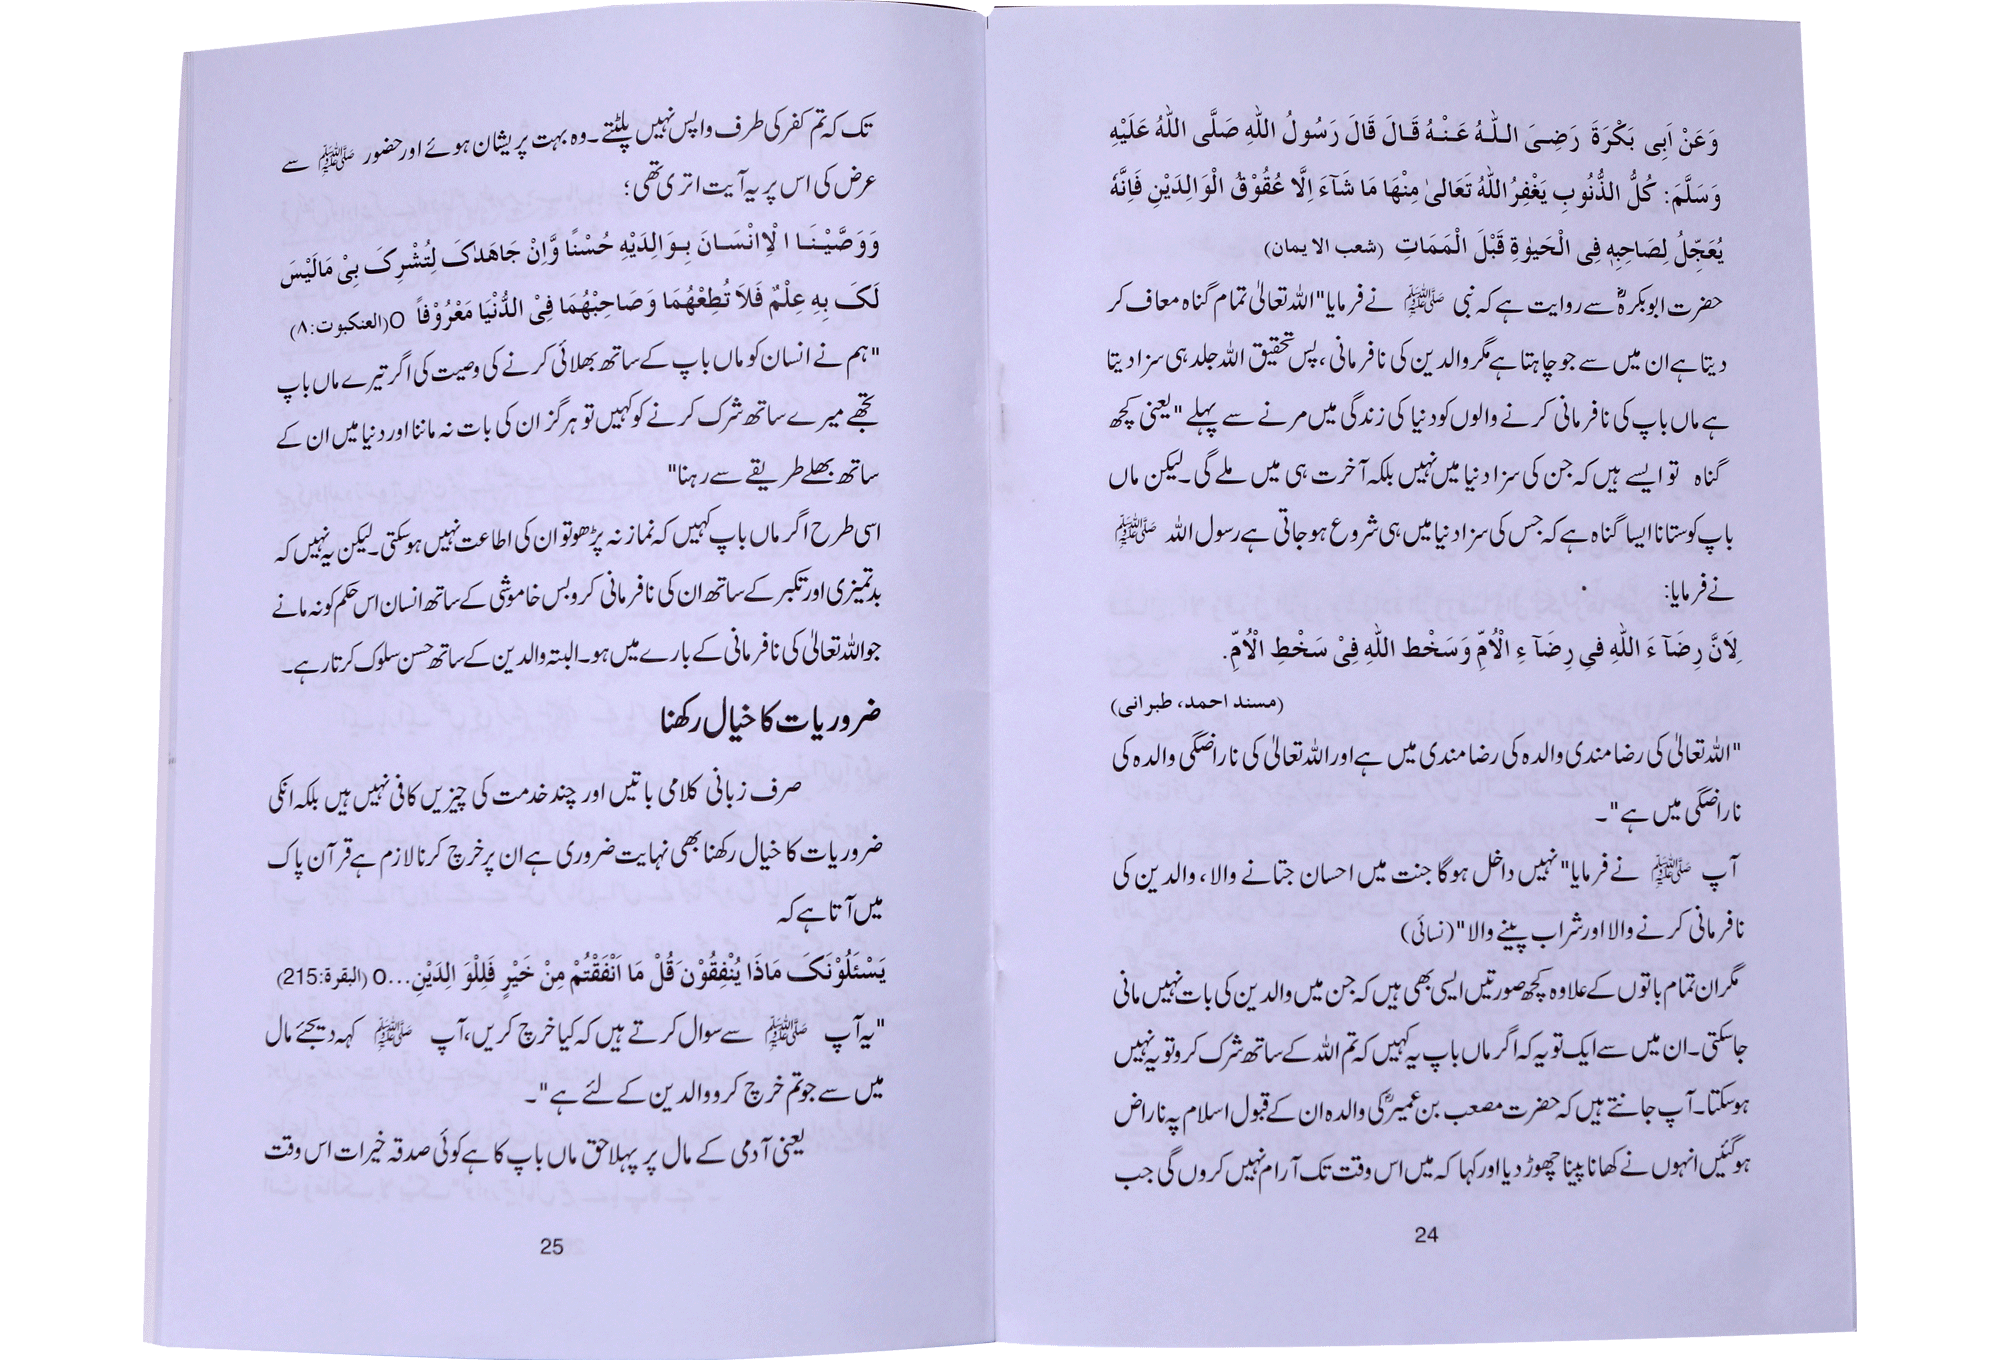 وَعَنْ اَبِی بَکْرَةَ رَضِیَ اللّٰہُ عَنْہُ قَالَ قَالَ رَسُولُ اللّٰہِ صَلَّی اللّٰہُ عَلَیْہِ
وَسَلَّمَ: کُلُّ الذُّنُوبِ یَغْفِرُ اللّٰہُ تَعَالیٰ مِنْھَا مَا شَآءَ اِلَّا عُقُوْقُ الْوَالِدَیْنِ فَاِنَّہٗ
یُعَجِّلُ لِصَاحِبِہٖ فِی الْحَیٰوةِ قَبْلَ الْمَمَاتِ (شعب الایمان)
حضرت ابوبکرہؓ سے روایت ہے کہ نبی ﷺ نے فرمایا"اللہ تعالیٰ تمام گناہ معاف کر
دیتا ہے ان میں سے جو چاہتا ہے مگر والدین کی نافرمانی، پس تحقیق اللہ جلد ہی سزا دیتا
ہے ماں باپ کی نافرمانی کرنے والوں کو دنیا کی زندگی میں مرنے سے پہلے"یعنی کچھ
گناہ تو ایسے ہیں کہ جن کی سزا دنیا میں نہیں بلکہ آخرت ہی میں ملے گی۔ لیکن ماں
باپ کو ستانا ایسا گناہ ہے کہ جس کی سزا دنیا میں ہی شروع ہو جاتی ہے رسول اللہ ﷺ
نے فرمایا:
لِاَنَّ رِضَآءَ اللّٰہِ فیِ رِضَآءِ الْاُمِّ وَسَخْط اللّٰہِ فِیْ سَخْطِ الْاُمِّ.
(مسند احمد، طبرانی)
"اللہ تعالیٰ کی رضا مندی والدہ کی رضا مندی میں ہے اور اللہ تعالیٰ کی ناراضگی والدہ کی
ناراضگی میں ہے"۔
آپ ﷺ نے فرمایا"نہیں داخل ہوگا جنت میں احسان جتانے والا، والدین کی
نافرمانی کرنے والا اور شراب پینے والا"(نسائی)
مگر ان تمام باتوں کے علاوہ کچھ صورتیں ایسی بھی ہیں کہ جن میں والدین کی بات نہیں مانی
جاسکتی۔ ان میں سے ایک تو یہ کہ اگر ماں باپ یہ کہیں کہ تم اللہ کے ساتھ شرک کرو تو یہ نہیں
ہوسکتا۔ آپ جانتے ہیں کہ حضرت مصعب بن عمیرؓ کی والدہ ان کے قبول اسلام پہ ناراض
ہوگئیں انہوں نے کھانا پینا چھوڑ دیا اور کہا کہ میں اس وقت تک آرام نہیں کروں گی جب
24
تک کہ تم کفر کی طرف واپس نہیں پلٹتے۔ وہ بہت پریشان ہوئے اور حضور ﷺ سے
عرض کی اس پر یہ آیت اتری تھی؛
وَوَصَّیْنَا الْاِنْسَانَ بِوَالِدَیْہِ حُسْنًا وَّاِنْ جَاھَدٰکَ لِتُشْرِکَ بِیْ مَالَیْسَ
لَکَ بِہٖ عِلْمٌ فَلاَ تُطِعْھُمَا وَصَاحِبْھُمَا فِیْ الدُّنْیَا مَعْرُوْفاً O(العنکبوت:۸)
"ہم نے انسان کو ماں باپ کے ساتھ بھلائی کرنے کی وصیت کی اگر تیرے ماں باپ
تجھے میرے ساتھ شرک کرنے کو کہیں تو ہرگز ان کی بات نہ ماننا اور دنیا میں ان کے
ساتھ بھلے طریقے سے رہنا"
اسی طرح اگر ماں باپ کہیں کہ نماز نہ پڑھو تو ان کی اطاعت نہیں ہوسکتی۔ لیکن یہ نہیں کہ
بدتمیزی اور تکبر کے ساتھ ان کی نافرمانی کرو بس خاموشی کے ساتھ انسان اس حکم کو نہ مانے
جو اللہ تعالیٰ کی نافرمانی کے بارے میں ہو۔ البتہ والدین کے ساتھ حسن سلوک کرتا رہے۔
ضروریات کا خیال رکھنا
صرف زبانی کلامی باتیں اور چند خدمت کی چیزیں کافی نہیں ہیں بلکہ انکی
ضروریات کا خیال رکھنا بھی نہایت ضروری ہے ان پر خرچ کرنا لازم ہے قرآن پاک
میں آتا ہے کہ
یَسْئَلُوْنَکَ مَاذَا یُنْفِقُوْنَ قُلْ مَا اَنْفَقْتُمْ مِنْ خَیْرٍ فَلِلْوَالِدَیْنِ...O (البقرة:215)
"یہ آپ ﷺ سے سوال کرتے ہیں کہ کیا خرچ کریں، آپ ﷺ کہہ دیجئے مال
میں سے جو تم خرچ کرو والدین کے لئے ہے"۔
یعنی آدمی کے مال پر پہلا حق ماں باپ کا ہے کوئی صدقہ خیرات اس وقت
25